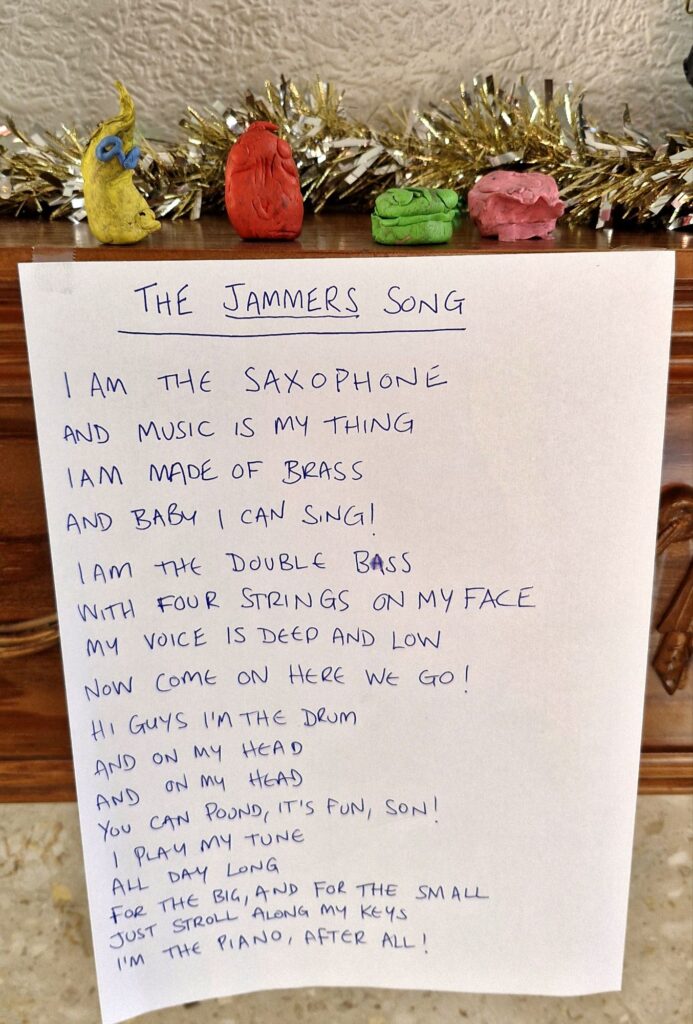 THE JAMMERS SONG
I AM THE SAXOPHONE
AND MUSIC IS MY THING
I AM MADE OF BRASS
AND BABY I CAN SING!
I AM THE DOUBLE BASS
WITH FOUR STRINGS ON MY FACE
MY VOICE IS DEEP AND LOW
NOW COME ON HERE WE GO!
HI GUYS I'M THE DRUM
AND ON MY HEAD
AND ON MY HEAD
YOU CAN POUND, IT'S FUN, SON!
I PLAY MY TUNE
ALL DAY LONG
FOR THE BIG, AND FOR THE SMALL
JUST STROLL ALONG MY KEYS
I'M THE PIANO, AFTER ALL!